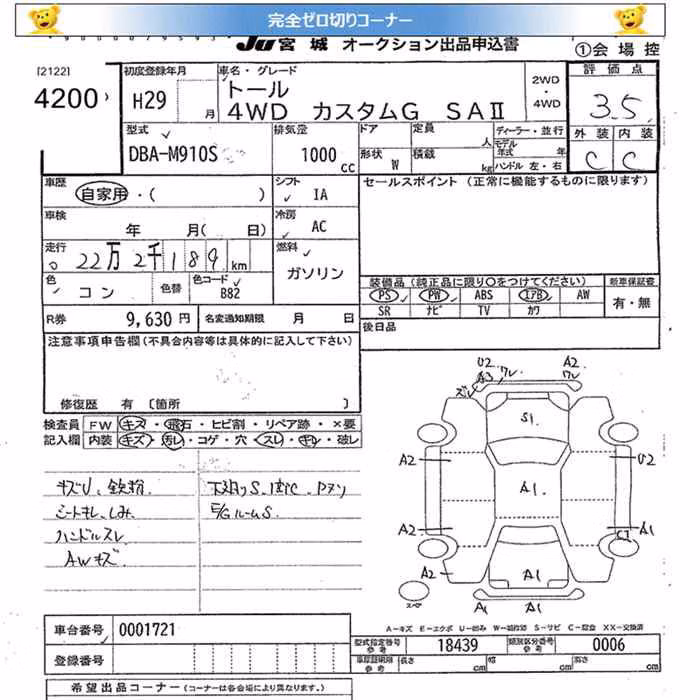 完全ゼロ切りコーナー
JU宮城 オークション出品申込書
①会場控
[2122]
4200
初度登録年月
H29 月
車名・グレード
トール
4WD カスタムG SAⅡ
2WD
・
4WD
評価点
3.5
外装 内装
C C
型式
DBA-M910S
排気量
1000 cc
ドア 定員 人
形状 W 積載 kg
ディーラー・並行
モデル年式 年
ハンドル 左・右
車歴
自家用・( )
シフト
IA
セールスポイント (正常に機能するものに限ります)
車検
年 月( 日)
冷房
AC
走行
22万2千189km
燃料
ガソリン
色
コン
色替
色コード
B82
装備品(純正品に限り○をつけてください)
PS PW ABS エアB AW
SR ナビ TV カワ
新車保証書
有・無
R券 9,630円
名変通知期限 月 日
後日品
注意事項申告欄(不具合内容等は具体的に記入して下さい)
修復歴 有 〔箇所 〕
検査員記入欄
FW キズ・飛石・ヒビ割・リペア跡・×要
内装 キズ・汚レ・コゲ・穴・スレ・キレ・破レ
キズU、鉄粉
シートキレ、しみ
ハンドルスレ
AWキズ
下廻りS
E/GルームS
U2 A3 ワレ A2 ワレ
ズレ
S1
A2 U2
A1
A2 A1
A2 A1
スペア
A1 A1
A-キズ E-エクボ U-凹み W-補修跡 S-サビ C-腐食 XX-交換済
車台番号 0001721
型式指定番号 参考 18439
類別区分番号 参考 0006
登録番号
車庫証明用 参考 長さ cm 幅 cm 高さ cm
希望出品コーナー(コーナーは各会場により異なります。)